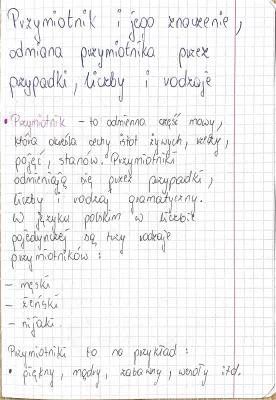 Przymiotnik i jego znaczenie,
odmiana przymiotnika przez
przypadki, liczby i rodzaje
• Przymiotnik - to odmienna część mowy,
która określa cechy istot żywych, rzeczy,
pojęć, stanów. Przymiotniki
odmieniają się przez przypadki,
liczby i rodzaj gramatyczny.
W języku polskim w liczbie
pojedynczej są trzy rodzaje
przymiotników:
- męski
- żeński
- nijaki
Przymiotniki to na przykład:
• piękny, mądry, zabawny, wesoły itd.